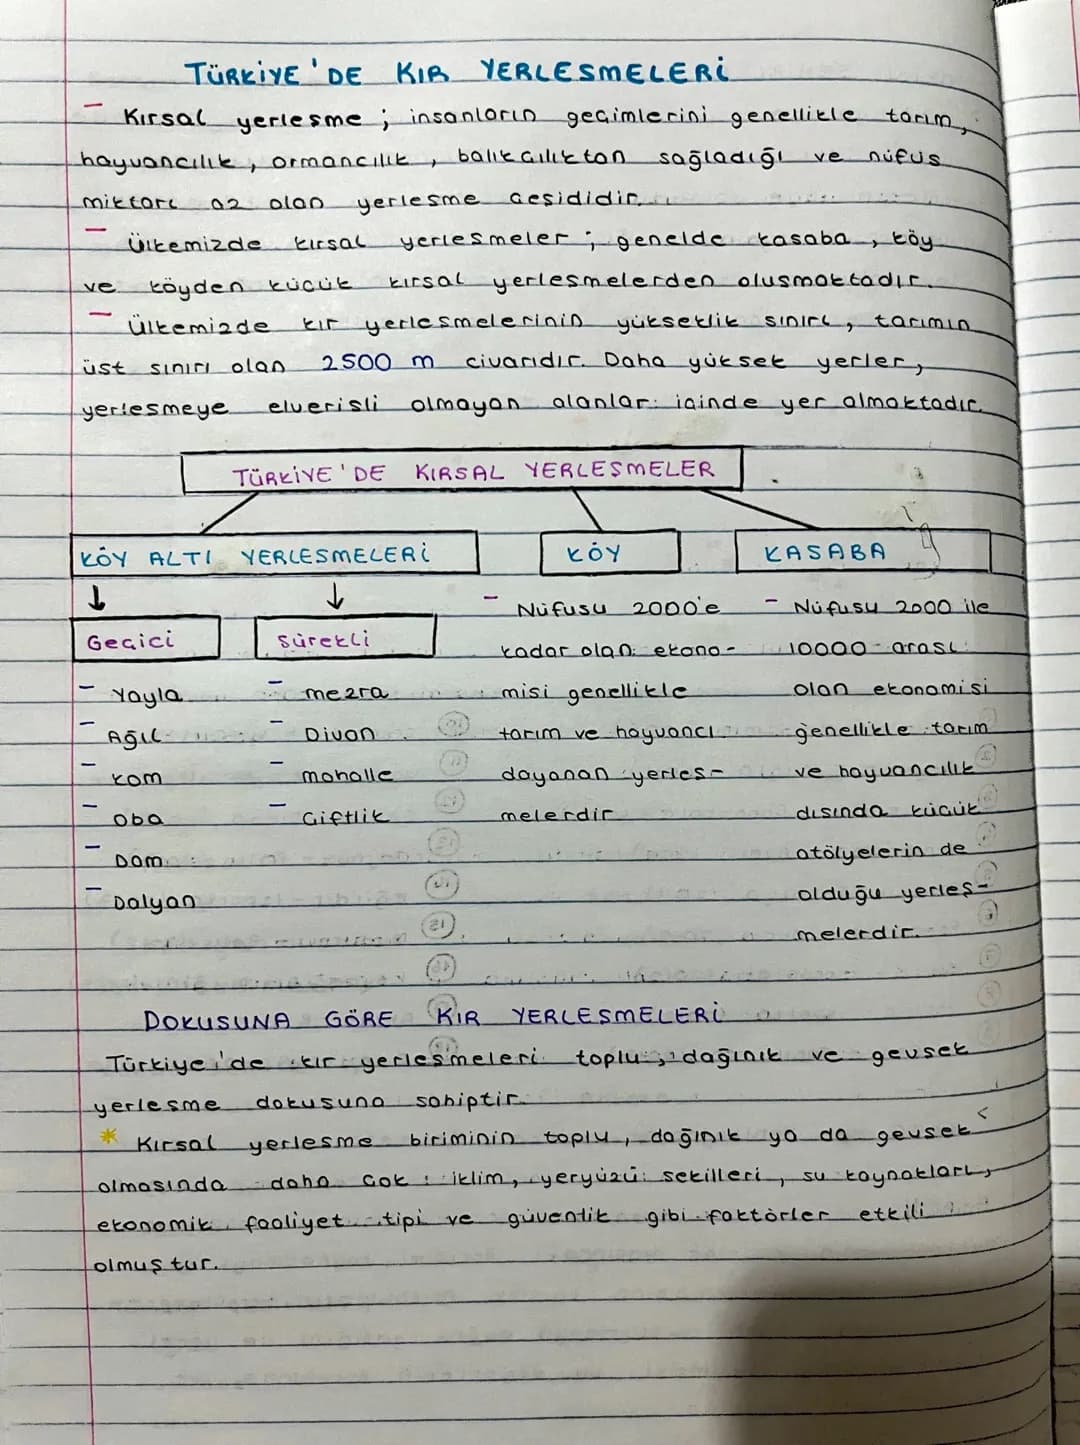 TÜRKİYE'DE KIR YERLESMELERİ
- Kırsal yerlesme ; insanların gecimlerini genellikle tarım,
hayvancılık, ormancılık, balıkcılıktan sağladığı ve nüfus
miktarı az olan yerlesme cesididir.
- Ülkemizde kırsal yerlesmeler ; genelde kasaba, köy
ve köyden kücük kırsal yerlesmelerden olusmaktadır.
- Ülkemizde kır yerlesmelerinin yükseklik sınırı, tarımın
üst sınırı olan 2500 m civarıdır. Daha yüksek yerler,
yerlesmeye elverisli olmayan alanlar icinde yer almaktadır.
TÜRKİYE'DE KIRSAL YERLESMELER
KÖY ALTI YERLESMELERİ
↓ Gecici
- Yayla
- Ağıl
- Kom
- Oba
- Dam
- Dalyan
↓ Sürekli
- mezra
- Divan
- mahalle
- Ciftlik
KÖY
- Nüfusu 2000'e
kadar olan ekono-
misi genellikle
tarım ve hayvancı
dayanan yerles-
melerdir
KASABA
- Nüfusu 2000 ile
10000 arası
olan ekonomisi
genellikle tarım
ve hayvancılık
dısında kücük
atölyelerin de
olduğu yerleş-
melerdir.
DOKUSUNA GÖRE KIR YERLESMELERİ
Türkiye'de kır yerleşmeleri toplu, dağınık ve gevsek
yerlesme dokusuna sahiptir.
* Kırsal yerlesme biriminin toplu, dağınık ya da gevsek
olmasında daha cok : iklim, yeryüzü sekilleri, su kaynakları,
ekonomik faaliyet tipi ve güvenlik gibi faktörler etkili
olmuştur.